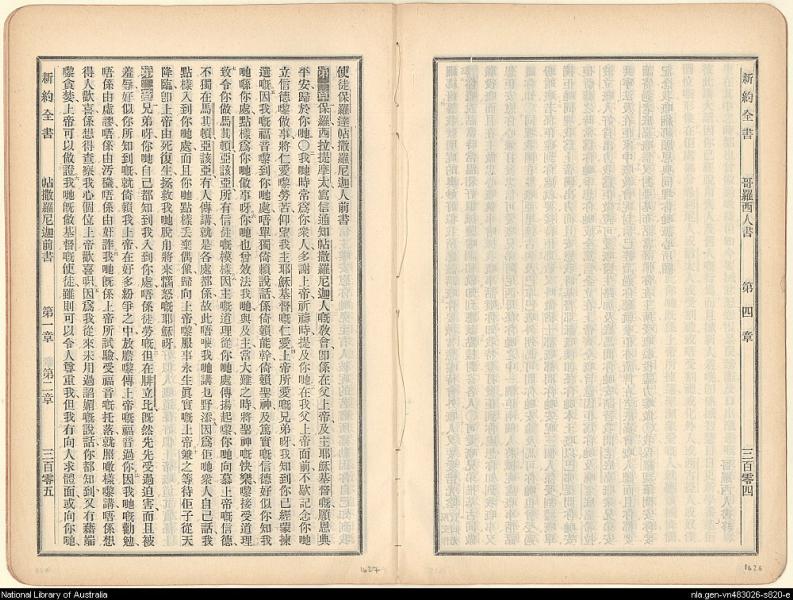 新約全書 哥羅西人書 第四章 三百零四
使徒保羅達帖撒羅尼迦人前書
保羅西拉提摩太寫信通知帖撒羅尼迦人嘅教會卽係在父上帝及主耶穌基督嘅願恩典
平安歸於你哋〇我哋時常爲你衆人多謝上帝祈禱時提及你哋在我父上帝面前不歇記念你哋
立信德嚟做事將仁愛嚟勞苦仰望我主耶穌基督嘅仁愛上帝所愛嘅兄弟呀我知到你已經蒙揀
選嘅因我嘅福音嚟到你哋處唔單獨倚賴說話係倚賴能幹倚賴聖神及篤實嘅信德好似你知我
哋喺你處點樣爲你哋做事呀你哋也曾效法我哋與及主當大難之時將聖神嘅快樂嚟接受道理
致令你做馬其頓亞該亞所有信徒嘅模樣因主嘅道理從你哋處傳揚起嚟你哋向慕上帝嘅信德
不獨在馬其頓亞該亞有人傳講就是各處都係故此唔使我哋講乜野添因爲佢哋衆人自己話我
點樣入到你哋處而且你哋點樣丟棄偶像歸向上帝嚟服事永生眞實嘅上帝兼之等待佢子從天
降臨卽上帝由死復生拯救我哋脫用將來惱怒嘅耶穌呀
兄弟呀你哋自己都知到我入到你處唔係徒勞嘅但在腓立比旣然先先受過迫害而且被
羞辱好似你所知到嘅就倚賴我上帝在好多紛爭之中放膽嚟傳上帝嘅福音過你因我哋嘅勸勉
唔係由虛謬唔係由汚穢唔係由奸詐我哋旣係上帝所試驗受福音嘅托落就照噉樣嚟講唔係想
得人歡喜係想得查察我哋心個位上帝歡喜呮因爲我從來未用過諂媚嘅說話你都知到又冇藉端
嚟貪婪上帝可以做證我哋旣做基督嘅使徒雖則可以令人尊重我但我冇向人求體面或向你哋
新約全書 帖撒羅尼迦前書 第一章 第二章 三百零五
1627
1626
National Library of Australia
nla.gen-vn483026-s820-e